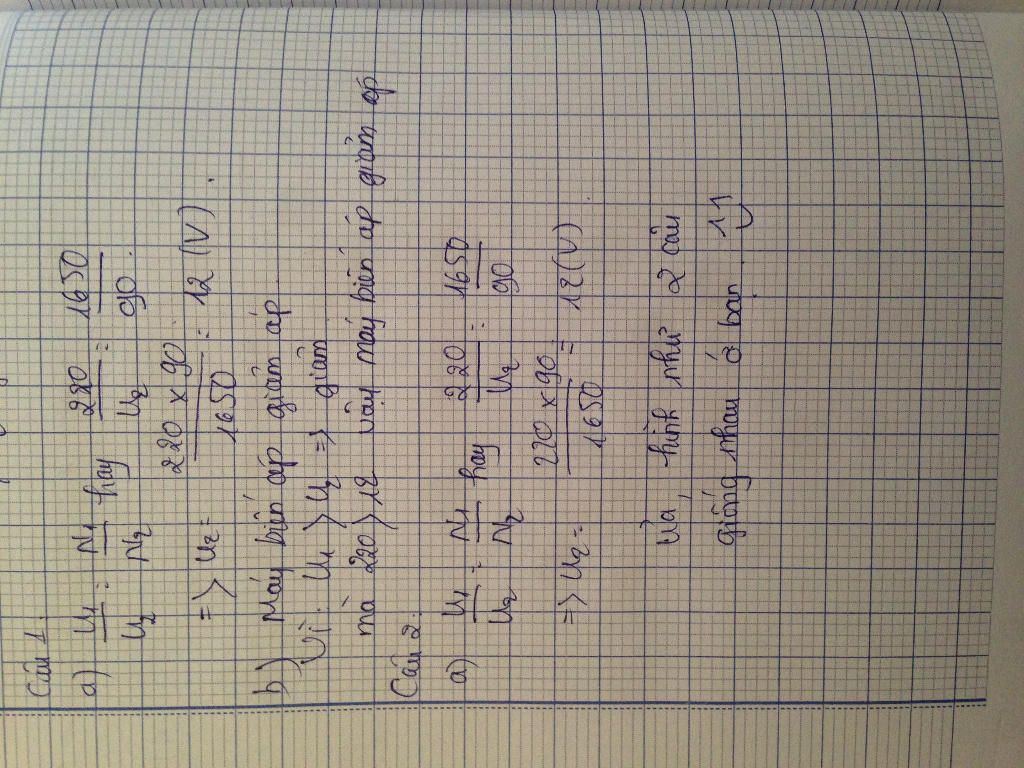 Câu 1:
a) U1/U2 = N1/N2 hay 220/U2 = 1650/90.
=> U2 = 220 x 90/1650 = 12 (V).
b) Máy biến áp giảm áp
Vì: U1 > U2 => giảm
mà 220 > 12 vậy máy biến áp giảm áp
Câu 2:
a) U1/U2 = N1/N2 hay 220/U2 = 1650/90
=> U2 = 220 x 90/1650 = 12 (V).
hình như 2 câu
giống nhau ó bạn 11